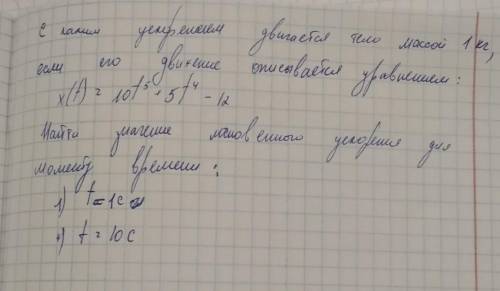 С каким ускорением двигается тело массой 1 кг,
если его движение описывается уравнением:
x(t) = 10t⁵ + 5t⁴ - 12
Найти значение мгновенного ускорения для
моменту времени:
1) t = 1c
t = 10c